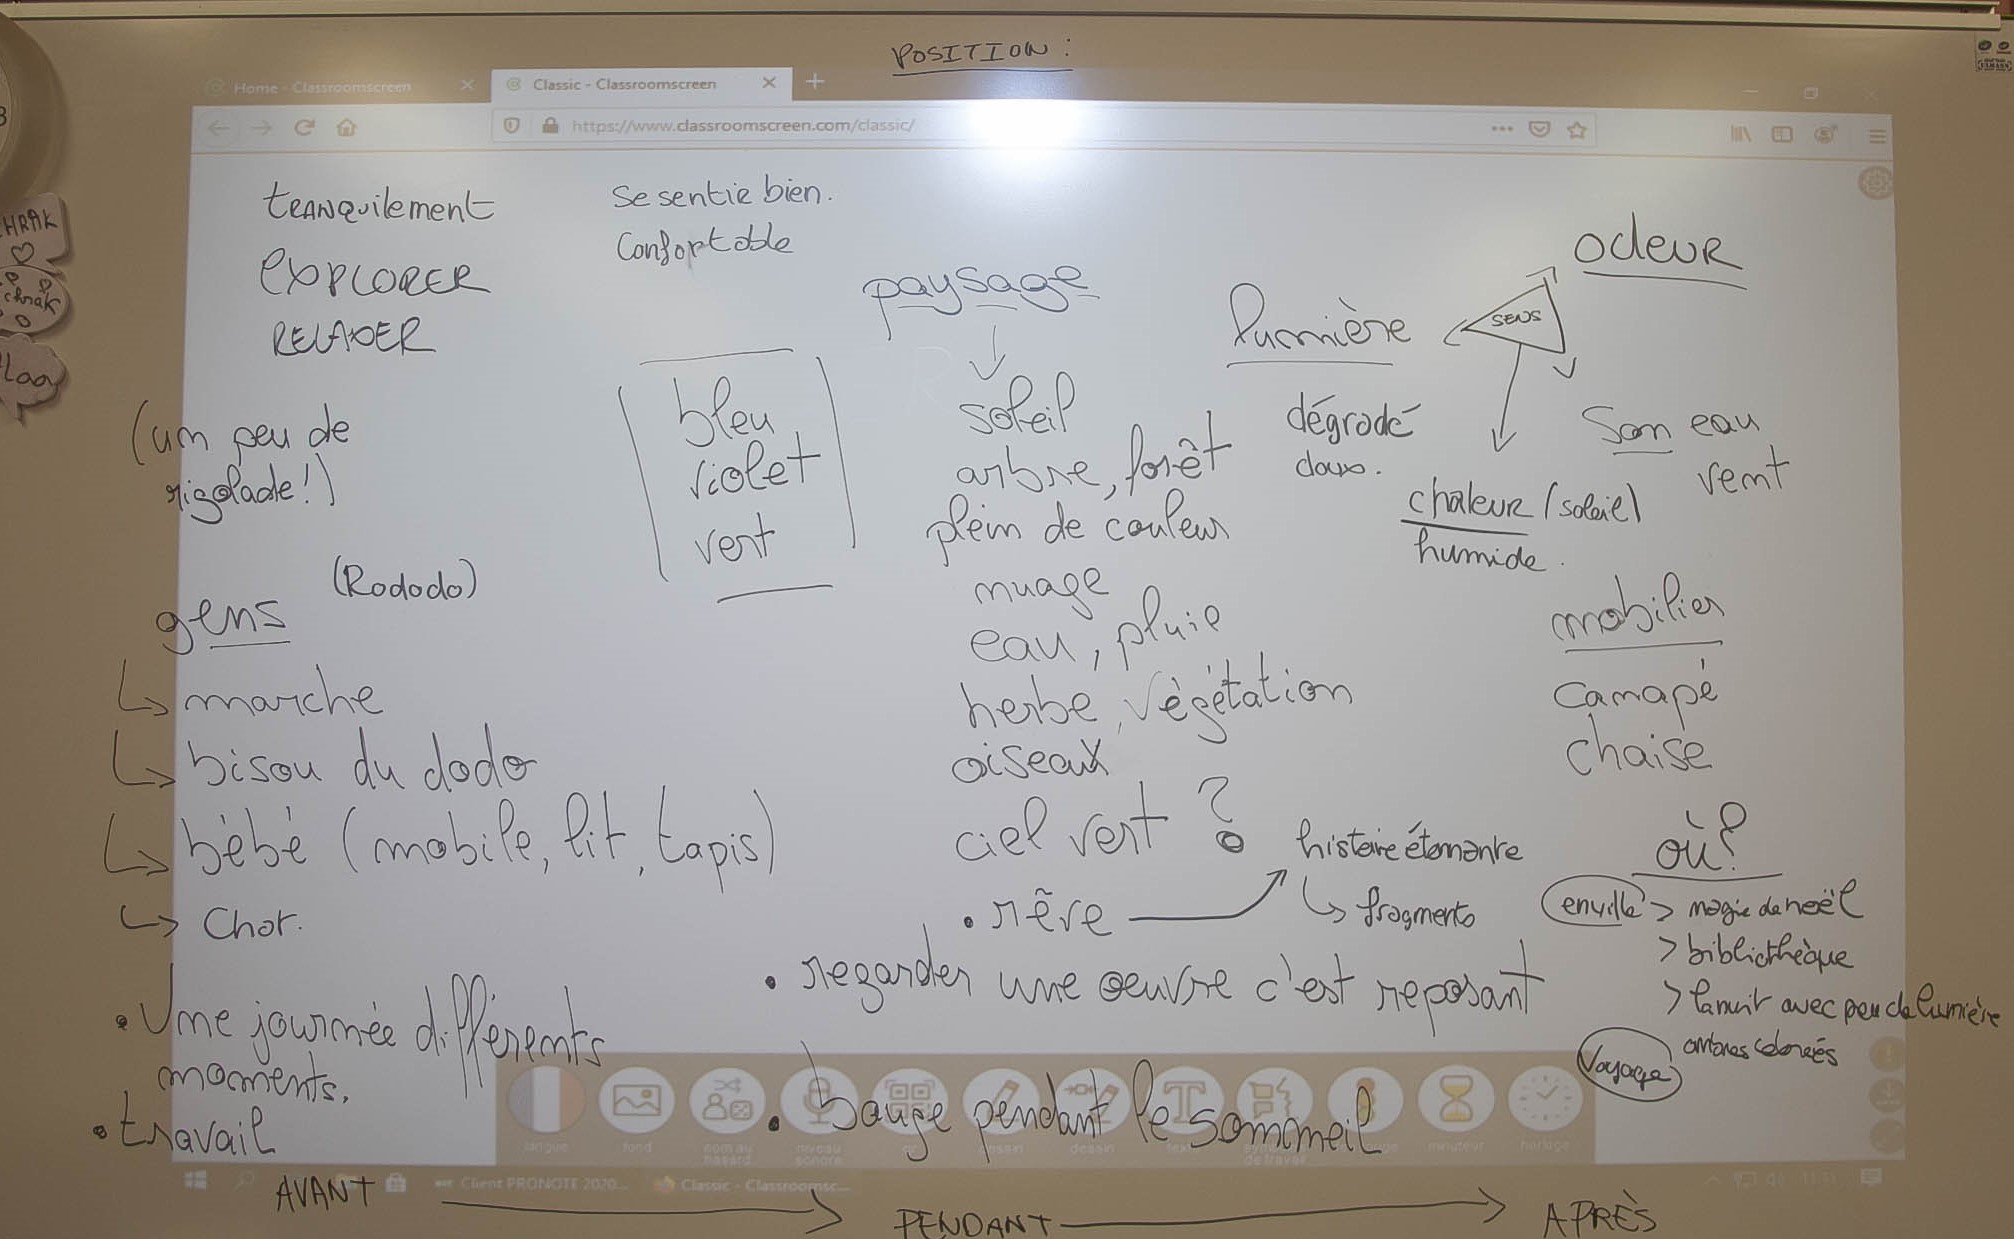 POSITION :
Home - Classroomscreen
Classic - Classroomscreen
https://www.classroomscreen.com/classic/
tranquilement
explorer
relaxer
(un peu de
rigolade!)
se sentir bien.
Confortable
bleu
violet
vert
paysage
soleil
arbre, forêt
plein de couleur
nuage
eau, pluie
herbe, végétation
oiseaux
ciel vert ?
• rêve
histoire étonnante
fragments
• regarder une oeuvre c'est reposant
• bouge pendant le sommeil
odeur
SENS
lumière
dégradé
doux.
Son eau
vent
chaleur (soleil)
humide.
mobilier
canapé
chaise
où?
en ville > magie de noël
> bibliothèque
> la nuit avec peu de lumière
ombres colorées
Voyage
(Rododo)
gens
marche
bisou du dodo
bébé (mobile, lit, tapis)
Chat.
• Une journée différents
moments.
• travail
langue
fond
nom au
hasard
niveau
sonore
dessin
minuteur
horloge
Client PRONOTE 2020...
Classic - Classroomsc...
11:11
AVANT
PENDANT
APRÈS